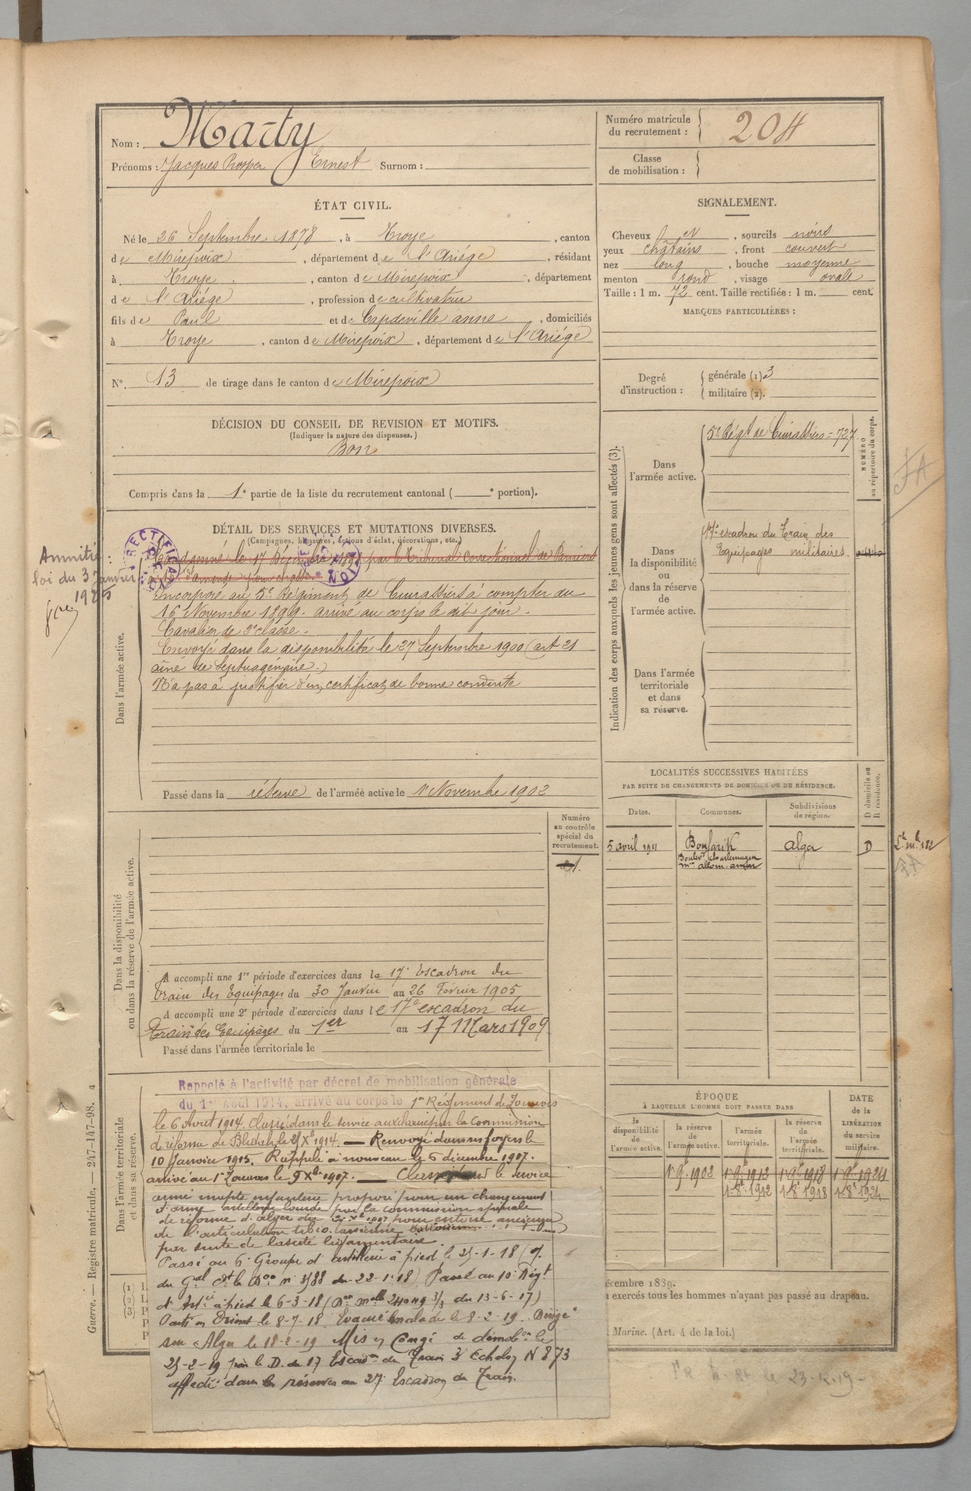 Nom : Marty
Prénoms : Jacques Prosper Ernest Surnom :
Numéro matricule du recrutement : 204
Classe de mobilisation :
ÉTAT CIVIL.
Né le 26 Septembre 1878, à Troye, canton
de Mirepoix, département de l'Ariége, résidant
à Troye, canton de Mirepoix, département
de l'Ariége, profession de cultivateur
fils de Paul et de Capdeville anne, domiciliés
à Troye, canton de Mirepoix, département de l'Ariége
N° 13 de tirage dans le canton de Mirepoix
SIGNALEMENT.
Cheveux, sourcils noirs
yeux chatains, front couvert
nez long, bouche moyenne
menton rond, visage ovale
Taille : 1 m. 72 cent. Taille rectifiée : 1 m. cent.
MARQUES PARTICULIÈRES :
Degré d'instruction : générale (1) 3
militaire (2).
DÉCISION DU CONSEIL DE REVISION ET MOTIFS.
(Indiquer la nature des dispenses.)
Bon
Compris dans la 1e partie de la liste du recrutement cantonal ( e portion).
DÉTAIL DES SERVICES ET MUTATIONS DIVERSES.
(Campagnes, blessures, actions d'éclat, décorations, etc.)
Amnistié :
loi du 3 Janvier
1925
RECTIFICATION
Condamné le 17 Décembre par le Tribunal Correctionnel de Pamiers
d'amende pour
Dans l'armée active.
Incorporé au 5e Régiment de Cuirassiers à compter du
16 Novembre 1899. arrivé au corps le dit jour.
Cavalier de 2e classe.
Envoyé dans la disponibilité le 27 Septembre 1900 (art 21
aîné de septuagénaire.)
N'a pas à justifier d'un certificat de bonne conduite
Passé dans la réserve de l'armée active le 1 Novembre 1902
Indication des corps auxquels les jeunes gens sont affectés (3).
Dans l'armée active.
5e Régt de Cuirassiers = 727
NUMÉRO au répertoire du corps.
FA
Dans la disponibilité ou dans la réserve de l'armée active.
17e escadron du Train des
Equipages militaires.
Dans l'armée territoriale et dans sa réserve.
LOCALITÉS SUCCESSIVES HABITÉES
PAR SUITE DE CHANGEMENTS DE DOMICILE OU DE RÉSIDENCE.
Dates. Communes. Subdivisions de région. D domicile ou R résidence.
5 avril 1911 Boufarik Alger D
Numéro au contrôle spécial du recrutement.
Dans la disponibilité ou dans la réserve de l'armée active.
A accompli une 1re période d'exercices dans le 17e Escadron du
Train des Equipages du 30 Janvier au 26 Février 1905
A accompli une 2e période d'exercices dans le 17e escadron du
Train des Equipages du 1er au 17 Mars 1909
Passé dans l'armée territoriale le
Dans l'armée territoriale et dans sa réserve.
Rappelé à l'activité par décret de mobilisation générale
du 1er Août 1914, arrivé au corps le 1er Régiment de Zouaves
le 6 Août 1914. Classé dans le service auxiliaire par la Commission
de réforme de Blidah le X 1914. — Renvoyé dans ses foyers le
10 Janvier 1915. Rappelé à nouveau le 6 décembre 1917.
arrivé au 1er Zouaves le 9 Xbre 1917. — Classé le service
armé inapte infanterie proposé pour un changement
d'arme artillerie lourde par la commission spéciale
de réforme d'Alger du 1917 pour entorse ancienne
de l'articulation tibio tarsienne
par suite de laxité ligamentaire.
Passé au 6e Groupe d'artillerie à pied le 25-1-18
du Gal du 22-1-18) Passé au 10e Régt
d'Artie à pied le 6-3-18 ( du 13-6-17)
Parti en Orient le 8-7-18 Evacué malade le 8-2-19 Dirigé
sur Alger le 18-2-19 Mis en Congé de démobon le
25-2-19 par le D. du 17 Escadon du Train 3e Echelon N 873
affecté dans les réserves au 27e Escadron du Train.
ÉPOQUE
À LAQUELLE L'HOMME DOIT PASSER DANS
la disponibilité de l'armée active.
la réserve de l'armée active.
l'armée territoriale.
la réserve de l'armée territoriale.
DATE de la LIBÉRATION du service militaire.
écembre 1889.
exercés tous les hommes n'ayant pas passé au drapeau.
Marine. (Art. 4 de la loi.)
Guerre. — Registre matricule. — 247-147-98.